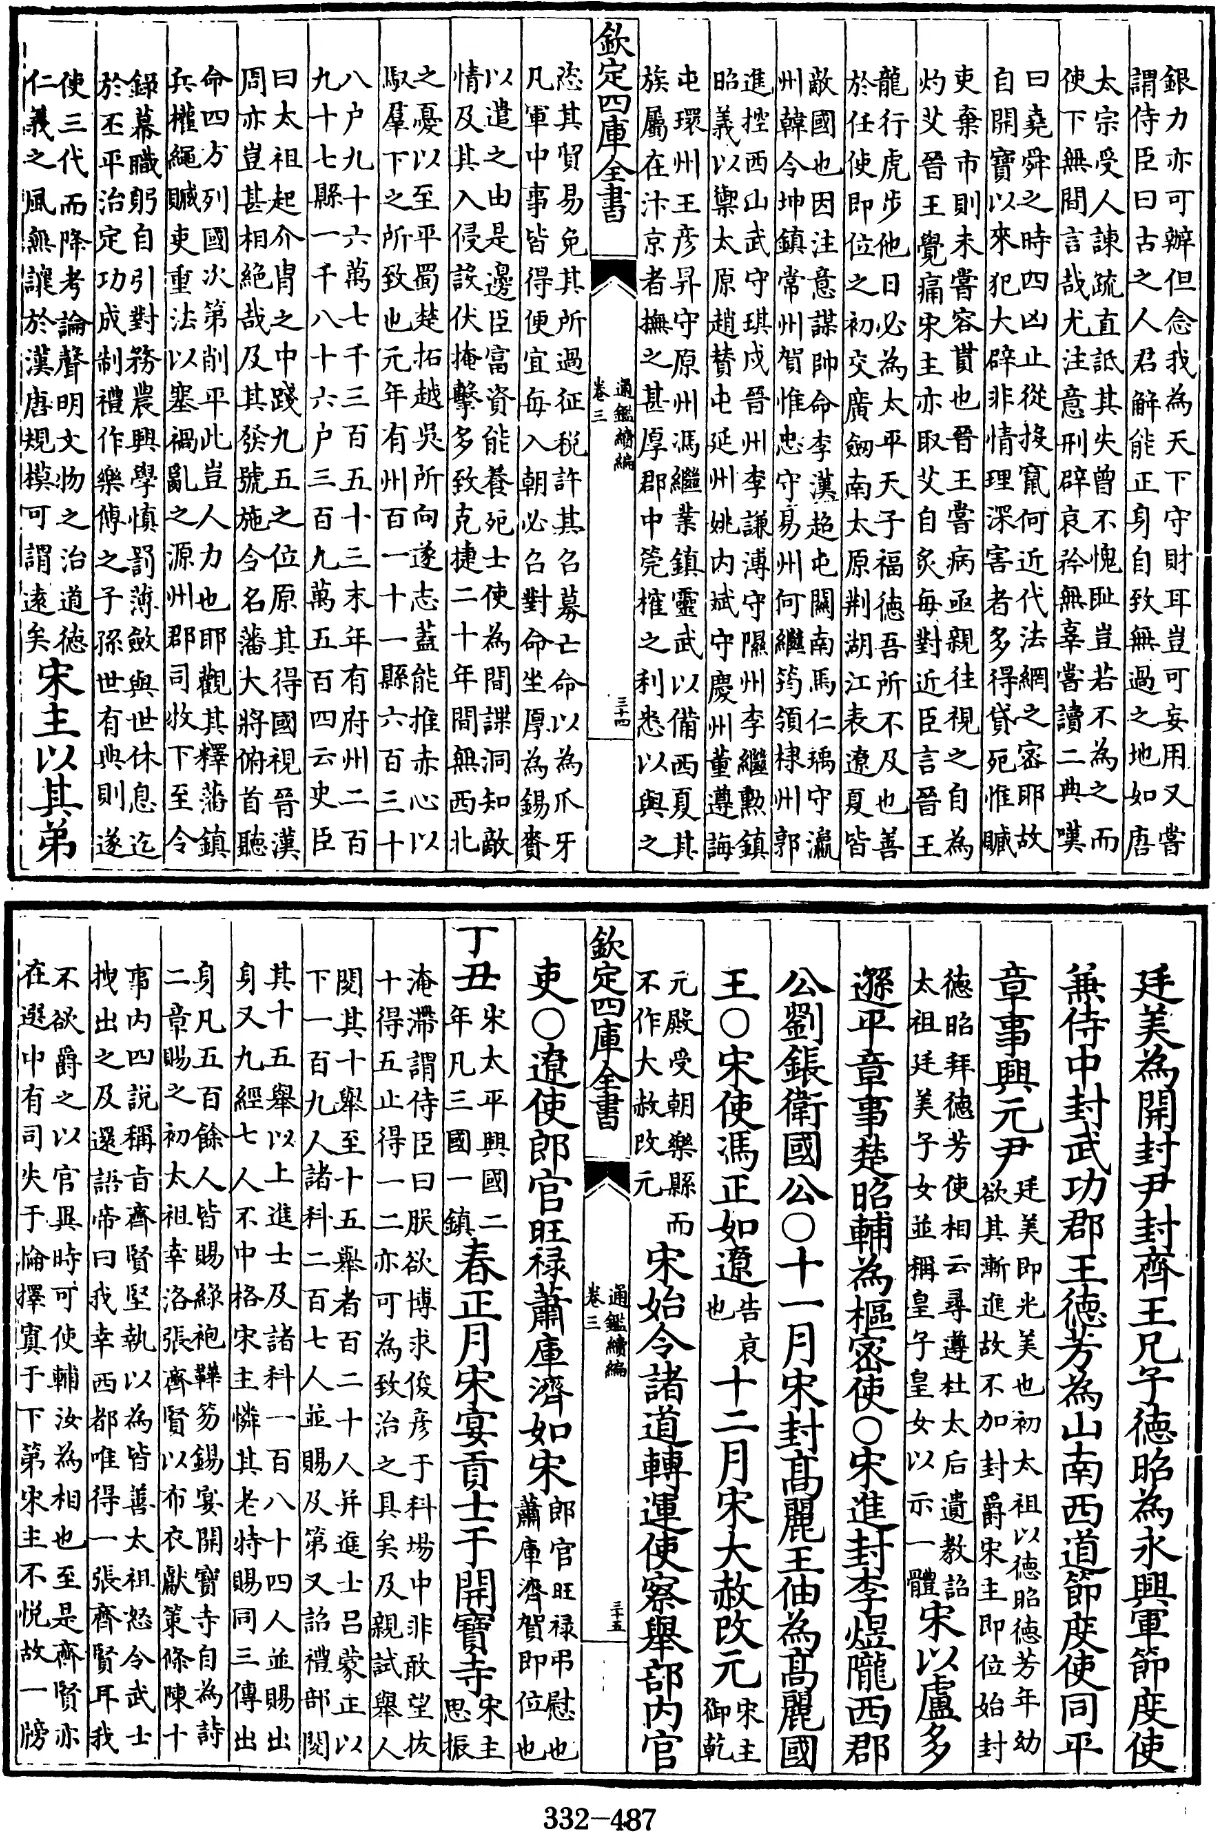 銀力亦可辦但念我為天下守財耳豈可妄用又嘗
謂侍臣曰古之人君解能正身自致無過之地如唐
太宗受人諫疏直詆其失曾不愧恥豈若不為之而
使下無間言哉尤注意刑辟哀矜無辜嘗讀二典嘆
曰堯舜之時四凶止從投竄何近代法網之密耶故
自開寶以來犯大辟非情理深害者多得貸死惟贓
吏棄市則未嘗容貰也晉王嘗病亟親往視之自為
灼艾晉王覺痛宋主亦取艾自炙每對近臣言晉王
龍行虎步他日必為太平天子福德吾所不及也善
於任使即位之初交廣劔南太原荆湖江表遼夏皆
敵國也因注意謀帥命李漢超屯關南馬仁瑀守瀛
州韓令坤鎮常州賀惟忠守易州何繼筠領棣州郭
進控西山武守琪戍晉州李謙溥守隰州李繼勳鎮
昭義以禦太原趙贊屯延州姚内斌守慶州董遵誨
屯環州王彦昇守原州馮繼業鎮靈武以備西夏其
族屬在汴京者撫之甚厚郡中筦榷之利悉以與之
欽定四庫全書
通鑑續編
卷三
三十四
恣其貿易免其所過征稅許其召募亡命以為爪牙
凡軍中事皆得便宜每入朝必召對命坐厚為錫賚
以遣之由是邊臣富資能養死士使為間諜洞知敵
情及其入侵設伏掩擊多致克捷二十年間無西北
之憂以至平蜀楚拓越吳所向遂志蓋能推赤心以
馭羣下之所致也元年有州百一十一縣六百三十
八户九十六萬七千三百五十三末年有府州二百
九十七縣一千八十六户三百九萬五百四云史臣
曰太祖起介冑之中踐九五之位原其得國視晉漢
周亦豈甚相絶哉及其發號施令名藩大將俯首聽
命四方列國次第削平此豈人力也耶觀其釋藩鎮
兵權繩贓吏重法以塞禍亂之源州郡司牧下至令
錄幕職躬自引對務農興學慎罰薄斂與世休息迄
於丕平治定功成制禮作樂傳之子孫世有典則遂
使三代而降考論聲明文物之治道德
仁義之風無讓於漢唐規模可謂遠矣
宋主以其弟
廷美為開封尹封齊王兄子德昭為永興軍節度使
兼侍中封武功郡王德芳為山南西道節度使同平
章事興元尹
廷美即光美也初太祖以德昭德芳年幼
欲其漸進故不加封爵宋主即位始封
德昭拜德芳使相云尋遵杜太后遺教詔
太祖廷美子女並稱皇子皇女以示一體
宋以盧多
遜平章事楚昭輔為樞密使○宋進封李煜隴西郡
公劉鋹衛國公○十一月宋封髙麗王伷為髙麗國
王○宋使馮正如遼
告哀
也
十二月宋大赦改元
宋主
御乾
元殿受朝樂縣而
不作大赦改元
宋始令諸道轉運使察舉部内官
欽定四庫全書
通鑑續編
卷三
三十五
吏○遼使郎官旺禄蕭庫濟如宋
郎官旺禄弔慰也
蕭庫濟賀即位也
丁丑
宋太平興國二
年凡三國一鎮
春正月宋宴貢士于開寶寺
宋主
思振
淹滯謂侍臣曰朕欲博求俊彦于科場中非敢望拔
十得五止得一二亦可為致治之具矣及親試舉人
閱其十舉至十五舉者百二十人并進士吕蒙正以
下一百九人諸科二百七人並賜及第又詔禮部閱
其十五舉以上進士及諸科一百八十四人並賜出
身又九經七人不中格宋主憐其老特賜同三傳出
身凡五百餘人皆賜綠袍鞾笏錫宴開寶寺自為詩
二章賜之初太祖幸洛張齊賢以布衣獻策條陳十
事内四説稱旨齊賢堅執以為皆善太祖怒令武士
拽出之及還語帝曰我幸西都唯得一張齊賢耳我
不欲爵之以官異時可使輔汝為相也至是齊賢亦
在選中有司失于掄擇寘于下第宋主不悦故一牓
332-487